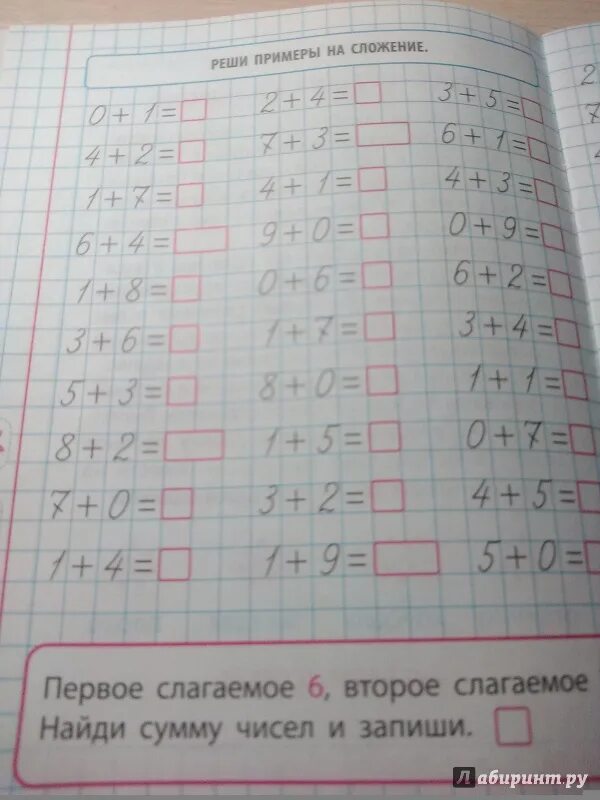 РЕШИ ПРИМЕРЫ НА СЛОЖЕНИЕ.
0+1= 2+4= 3+5=
4+2= 7+3= 6+1=
1+7= 4+1= 4+3=
6+4= 9+0= 0+9=
1+8= 0+6= 6+2=
3+6= 1+7= 3+4=
5+3= 8+0= 1+1=
8+2= 1+5= 0+7=
7+0= 3+2= 4+5=
1+4= 1+9= 5+0=
Первое слагаемое 6, второе слагаемое
Найди сумму чисел и запиши.
Лабиринт.ру